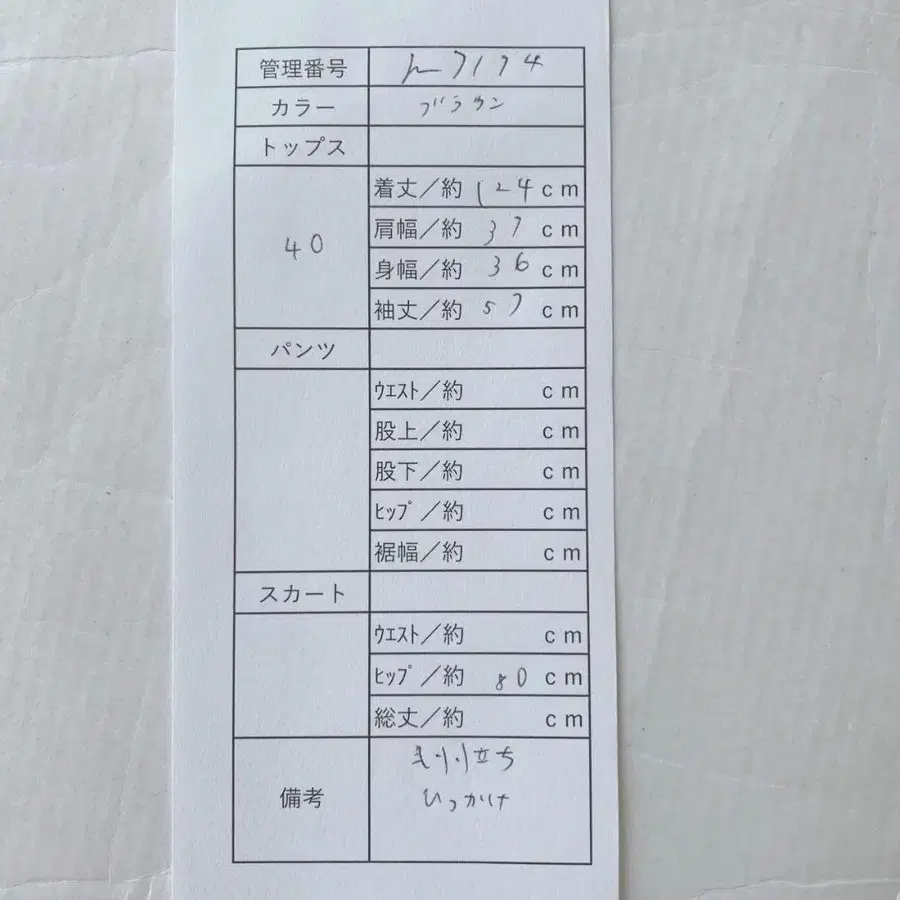 管理番号 h-7174
カラー ブラウン
トップス
40
着丈／約 124 cm
肩幅／約 37 cm
身幅／約 36 cm
袖丈／約 57 cm
パンツ
ｳｴｽﾄ／約 cm
股上／約 cm
股下／約 cm
ﾋｯﾌﾟ／約 cm
裾幅／約 cm
スカート
ｳｴｽﾄ／約 cm
ﾋｯﾌﾟ／約 80 cm
総丈／約 cm
備考
毛羽立ち
ひっかけ